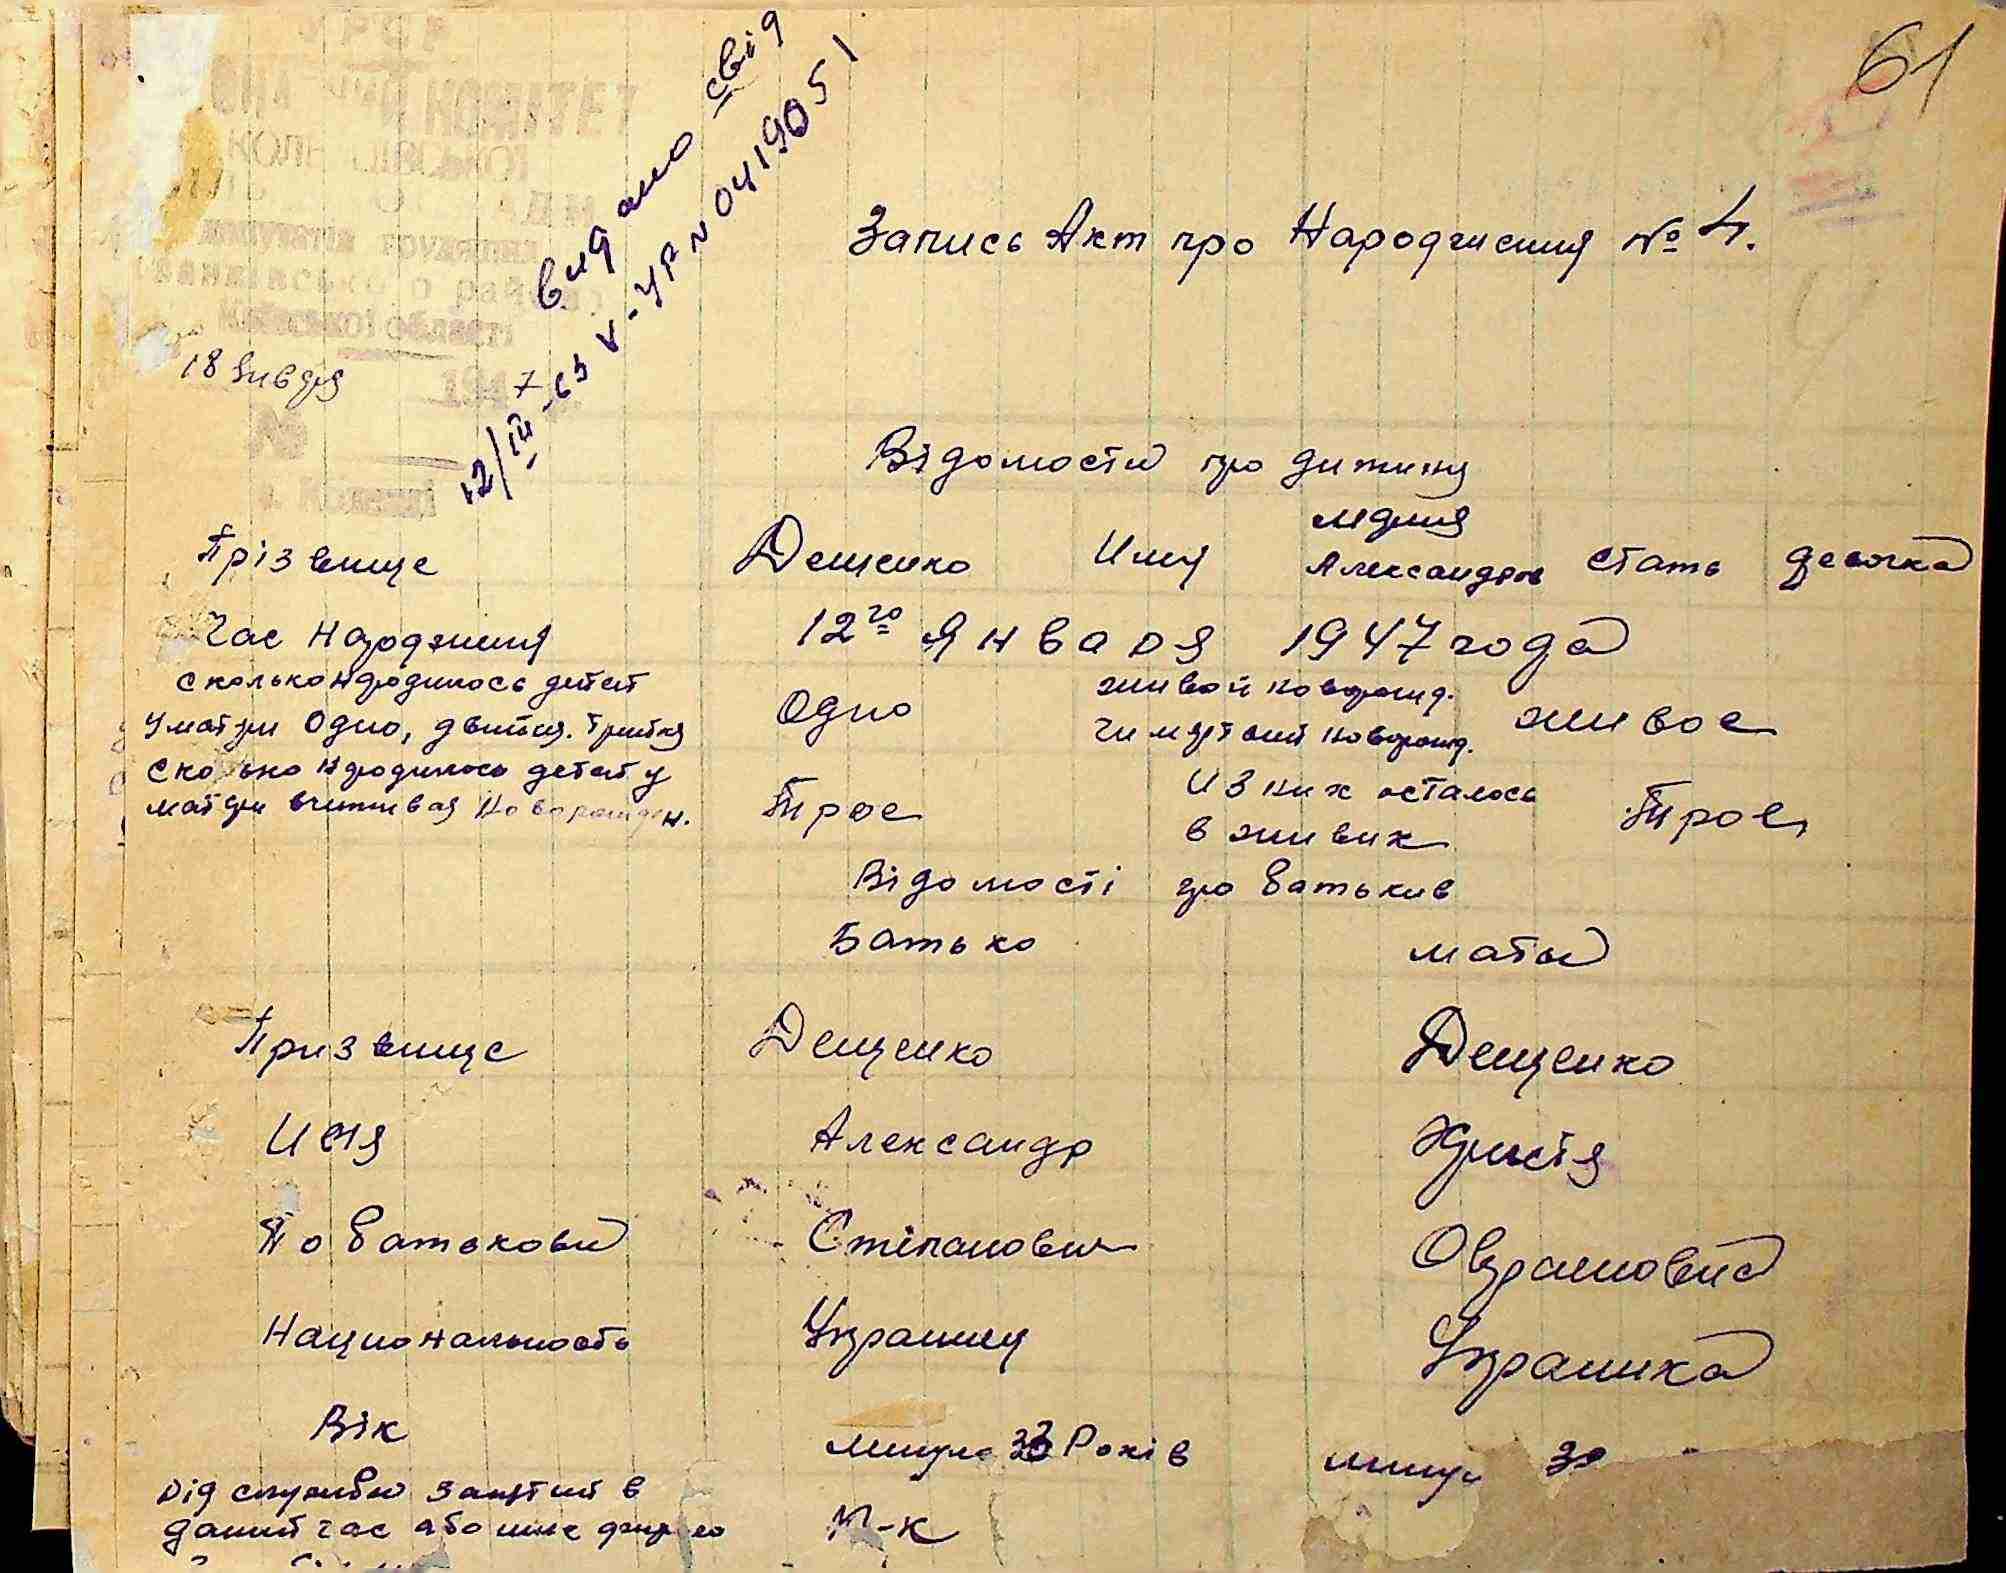 61
УРСР
КОМІТЕТ
депутатів трудящих
району
Київської області
18 Января 1947
видано свід
12/III-63 V-УР N 0419051
Запись Акт про Народження № 4.
Відомости про дитину
Прізвище Дещенко Имя Александров стать девочка
Час Народжиния 12го Января 1947 года
сколько народилось детей
У матери Одно, двийня. Трийня Одно живой новорожд.
чи мертвий новорожд. живое
Сколько народилось детей у
матери вчитивая новорожден. Трое Из них осталось
в живих Трое
Відомості про батькив
Батько маты
Призвище Дещенко Дещенко
Имя Александр Христя
По батькови Степанович
Национальность Украинец Украинка
Вік минуло 33 Років минул 30
Рід служби занятий в
даний час або
М-К